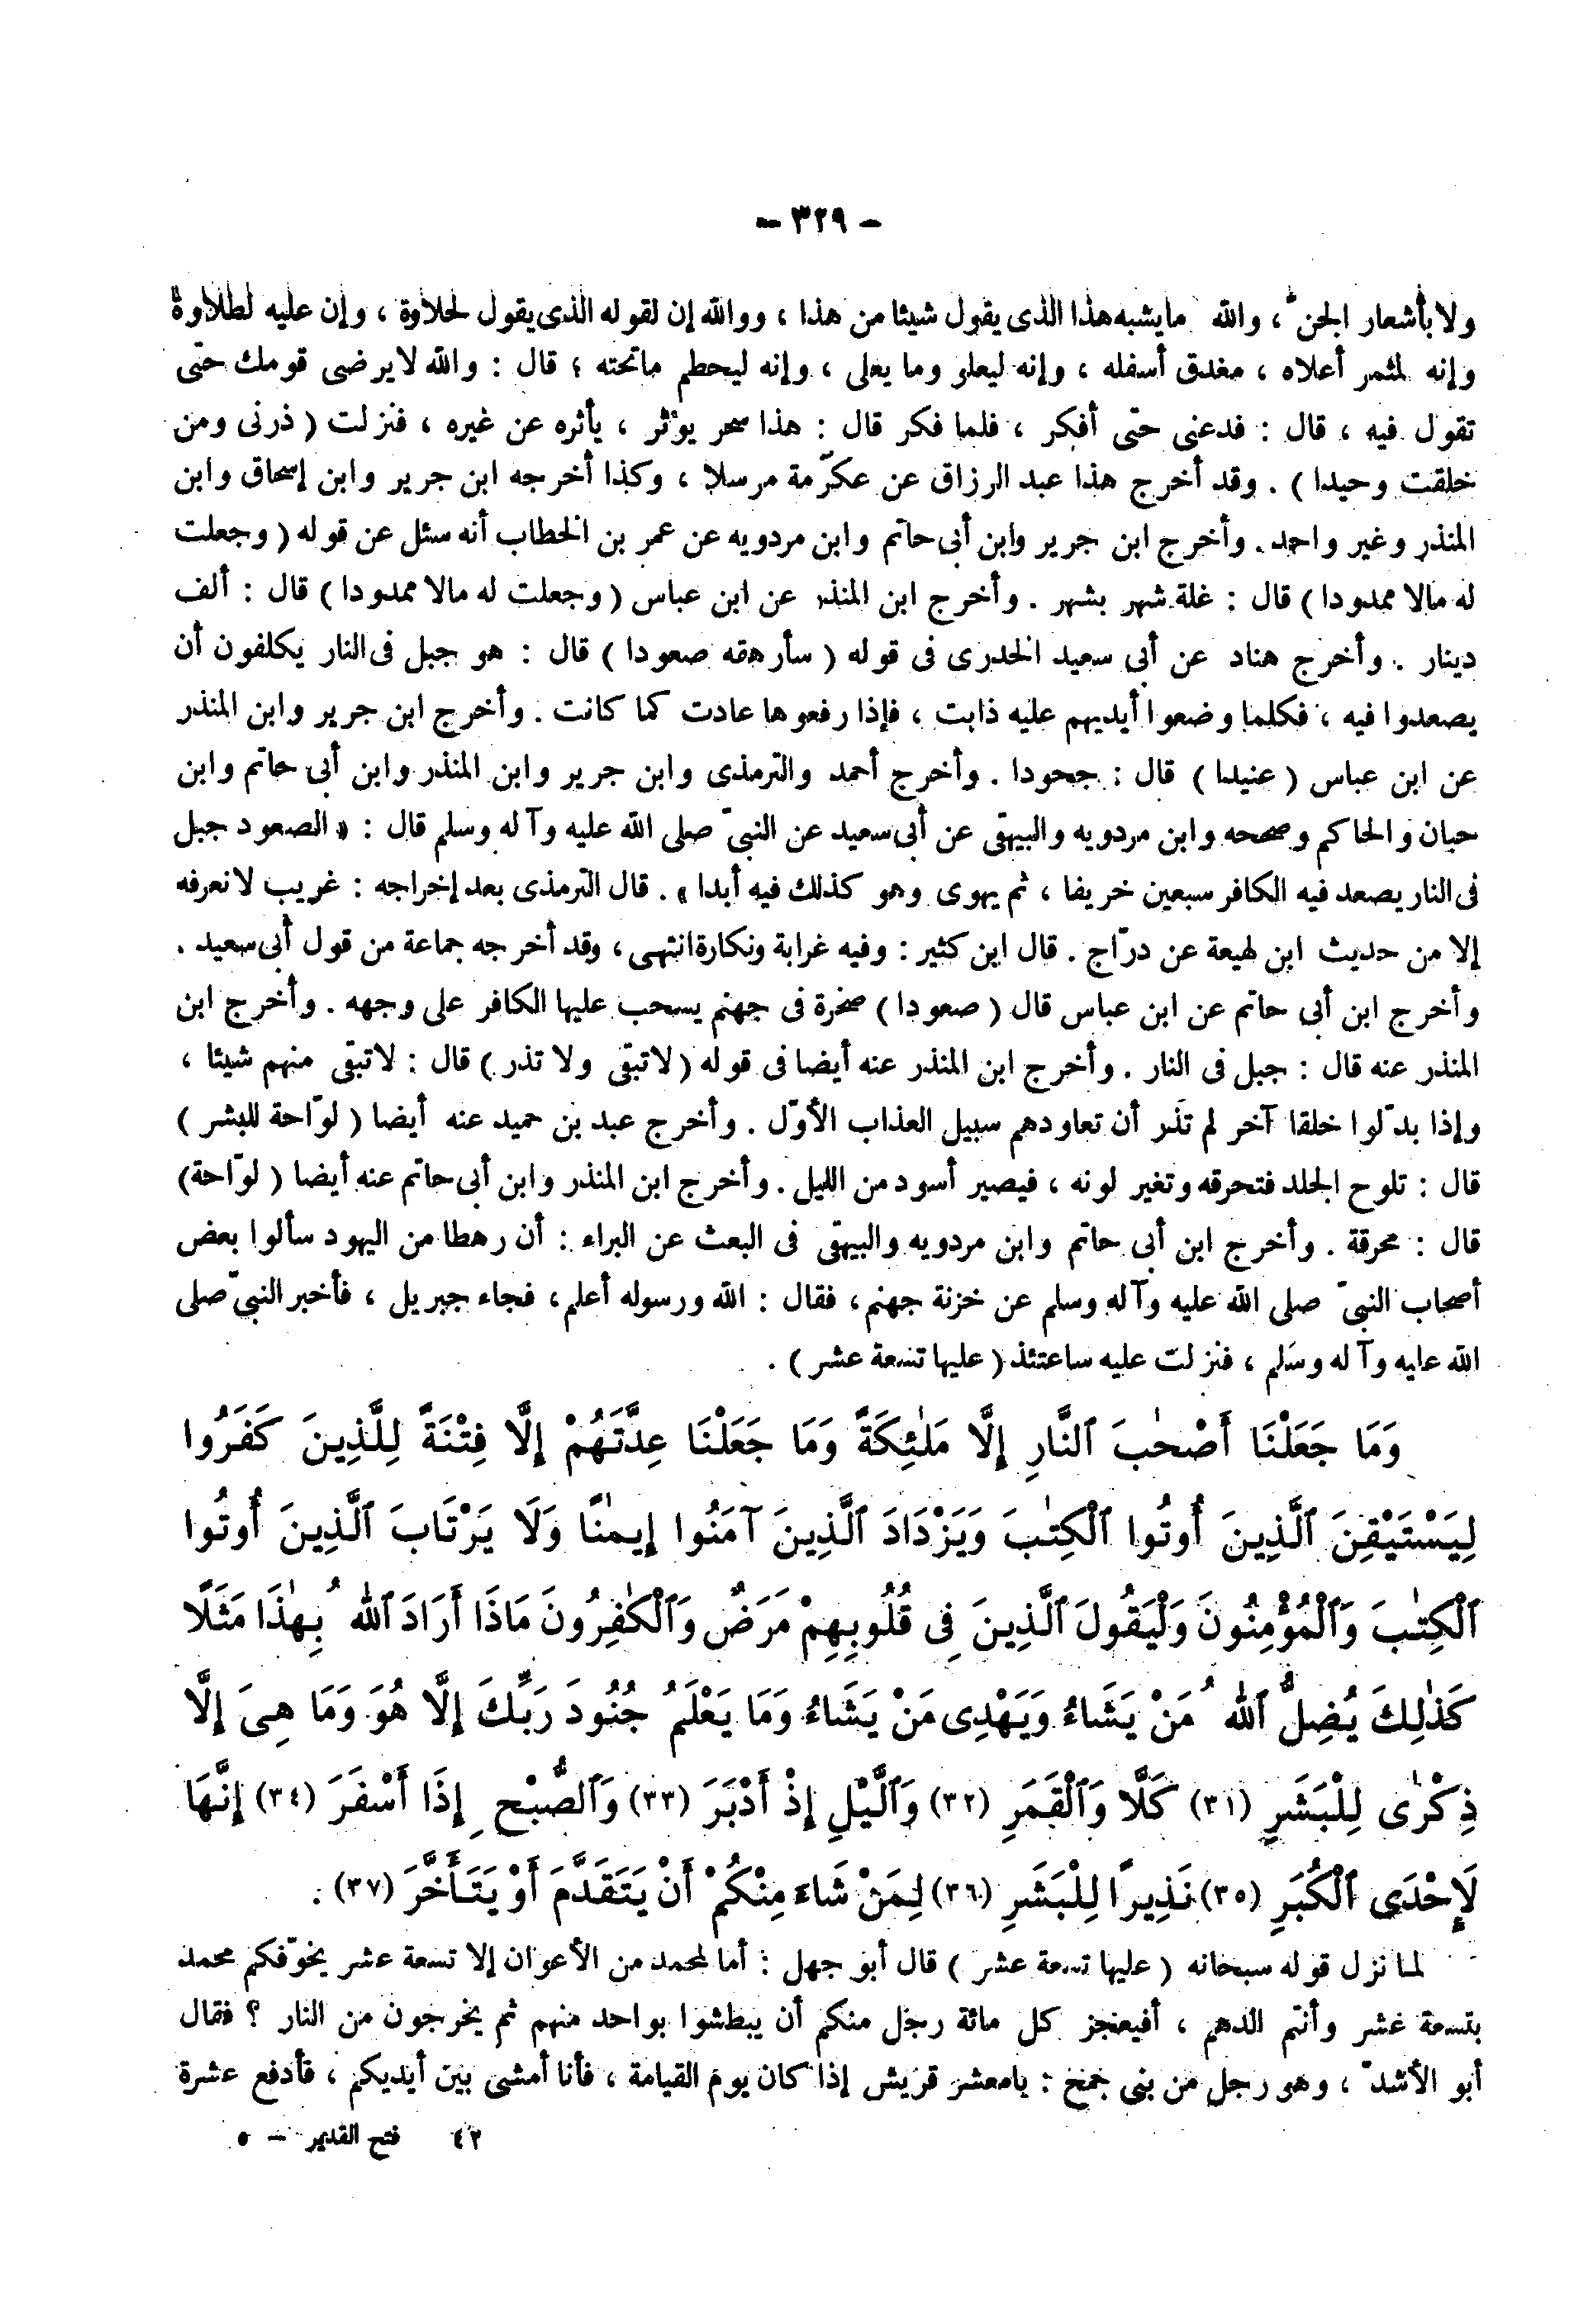 - ٣٢٩ -
ولا بأشعار الجن ، والله ما يشبه هذا الذى يقول شيئا من هذا ، ووالله إن لقوله الذى يقول لحلاوة ، وإن عليه لطلاوة
وإنه لمثمر أعلاه ، مغدق أسفله ، وإنه ليعلو وما يعلى ، وإنه ليحطم ماتحته ؛ قال : والله لايرضى قومك حتّى
تقول فيه ، قال : فدعنى حتّى أفكر ، فلما فكر قال : هذا سحر يؤثر ، يأثره عن غيره ، فنزلت ( ذرنى ومن
خلقت وحيدا ) . وقد أخرج هذا عبد الرزاق عن عكرمة مرسلا ، وكذا أخرجه ابن جرير وابن إسحاق وابن
المنذر وغير واحد . وأخرج ابن جرير وابن أبى حاتم وابن مردويه عن عمر بن الخطاب أنه سئل عن قوله ( وجعلت
له مالا ممدودا ) قال : غلة شهر بشهر . وأخرج ابن المنذر عن ابن عباس ( وجعلت له مالا ممدودا ) قال : ألف
دينار . وأخرج هناد عن أبى سعيد الخدرى فى قوله ( سأرهقه صعودا ) قال : هو جبل فى النار يكلفون أن
يصعدوا فيه ، فكلما وضعوا أيديهم عليه ذابت ، فإذا رفعوها عادت كما كانت . وأخرج ابن جرير وابن المنذر
عن ابن عباس ( عنيدا ) قال : جحودا . وأخرج أحمد والترمذى وابن جرير وابن المنذر وابن أبى حاتم وابن
حبان والحاكم وصححه وابن مردويه والبيهقى عن أبى سعيد عن النبىّ صلى الله عليه وآله وسلم قال : « الصعود جبل
فى النار يصعد فيه الكافر سبعين خريفا ، ثم يهوى وهو كذلك فيه أبدا » . قال الترمذى بعد إخراجه : غريب لانعرفه
إلا من حديث ابن لهيعة عن درّاج . قال ابن كثير : وفيه غرابة ونكارة انتهى ، وقد أخرجه جماعة من قول أبى سعيد .
وأخرج ابن أبى حاتم عن ابن عباس قال ( صعودا ) صخرة فى جهنم يسحب عليها الكافر على وجهه . وأخرج ابن
المنذر عنه قال : جبل فى النار . وأخرج ابن المنذر عنه أيضا فى قوله ( لاتبقى ولا تذر ) قال : لاتبقى منهم شيئا ،
وإذا بدّلوا خلقا آخر لم تذر أن تعاودهم سبيل العذاب الأوّل . وأخرج عبد بن حميد عنه أيضا ( لوّاحة للبشر )
قال : تلوح الجلد فتحرقه وتغير لونه ، فيصير أسود من الليل . وأخرج ابن المنذر وابن أبى حاتم عنه أيضا ( لوّاحة)
قال : محرقة . وأخرج ابن أبى حاتم وابن مردويه والبيهقى فى البعث عن البراء : أن رهطا من اليهود سألوا بعض
أصحاب النبىّ صلى الله عليه وآله وسلم عن خزنة جهنم ، فقال : الله ورسوله أعلم ، فجاء جبريل ، فأخبر النبىّ صلى
الله عليه وآله وسلم ، فنزلت عليه ساعتئذ ( عليها تسعة عشر ) .
وَمَا جَعَلْنَا أَصْحٰبَ ٱلنَّارِ إِلَّا مَلٰئِكَةً وَمَا جَعَلْنَا عِدَّتَهُمْ إِلَّا فِتْنَةً لِلَّذِينَ كَفَرُوا
لِيَسْتَيْقِنَ ٱلَّذِينَ أُوتُوا ٱلْكِتٰبَ وَيَزْدَادَ ٱلَّذِينَ آمَنُوا إِيمٰنًا وَلَا يَرْتَابَ ٱلَّذِينَ أُوتُوا
ٱلْكِتٰبَ وَٱلْمُؤْمِنُونَ وَلْيَقُولَ ٱلَّذِينَ فِى قُلُوبِهِمْ مَرَضٌ وَٱلْكٰفِرُونَ مَاذَا أَرَادَ ٱللهُ بِهٰذَا مَثَلًا
كَذٰلِكَ يُضِلُّ ٱللهُ مَنْ يَشَاءُ وَيَهْدِى مَنْ يَشَاءُ وَمَا يَعْلَمُ جُنُودَ رَبِّكَ إِلَّا هُوَ وَمَا هِىَ إِلَّا
ذِكْرٰى لِلْبَشَرِ (٣١) كَلَّا وَٱلْقَمَرِ (٣٢) وَٱلَّيْلِ إِذْ أَدْبَرَ (٣٣) وَٱلصُّبْحِ إِذَا أَسْفَرَ (٣٤) إِنَّهَا
لَإِحْدَى ٱلْكُبَرِ (٣٥) نَذِيرًا لِلْبَشَرِ (٣٦) لِمَنْ شَاءَ مِنْكُمْ أَنْ يَتَقَدَّمَ أَوْ يَتَأَخَّرَ (٣٧) .
لما نزل قوله سبحانه ( عليها تسعة عشر ) قال أبو جهل : أما لمحمد من الأعوان إلا تسعة عشر يخوّفكم محمد
بتسعة عشر وأنتم الدهم ، أفيعجز كل مائة رجل منكم أن يبطشوا بواحد منهم ثم يخرجون من النار ؟ فقال
أبو الأشدّ ، وهو رجل من بنى جمح : يامعشر قريش إذا كان يوم القيامة ، فأنا أمشى بين أيديكم ، فأدفع عشرة
٤٢ فتح القدير - ٥